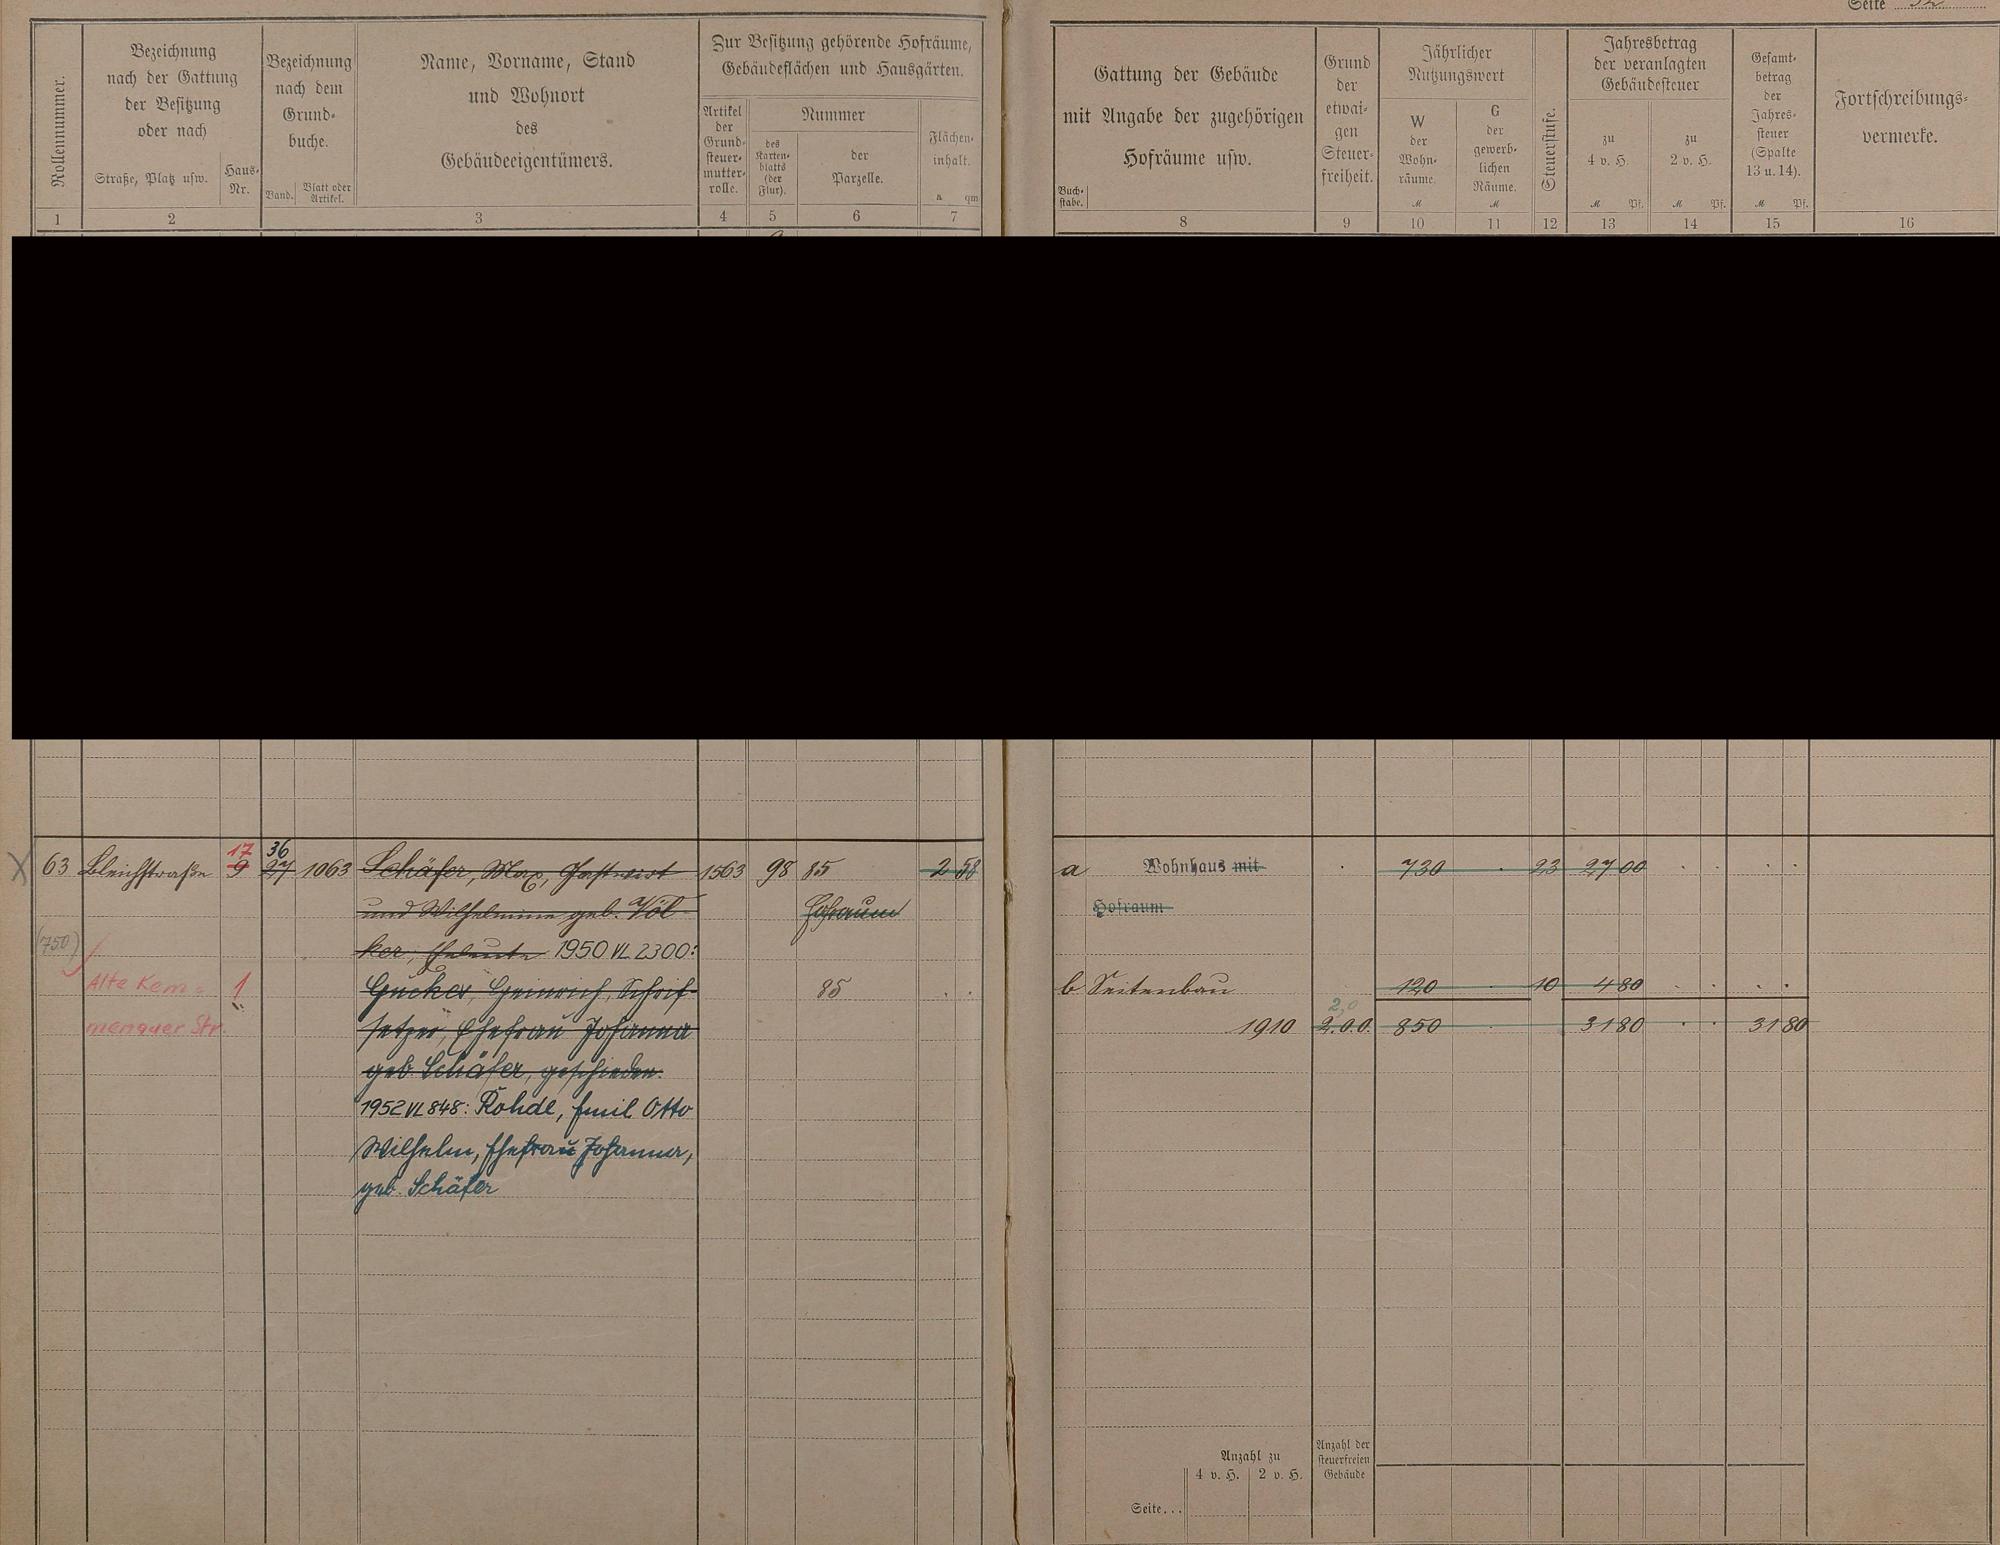 Seite
Rollennummer.
Bezeichnung
nach der Gattung
der Besitzung
oder nach
Straße, Platz usw.
Haus-
Nr.
Bezeichnung
nach dem
Grund-
buche.
Band.
Blatt oder
Artikel.
Name, Vorname, Stand
und Wohnort
des
Gebäudeeigentümers.
Zur Besitzung gehörende Hofräume,
Gebäudeflächen und Hausgärten.
Artikel
der
Grund-
steuer-
mutter-
rolle.
Nummer
des
Karten-
blatts
(der
Flur).
der
Parzelle.
Flächen-
inhalt.
a qm
Gattung der Gebäude
mit Angabe der zugehörigen
Hofräume usw.
Buch-
stabe.
Grund
der
etwai-
gen
Steuer-
freiheit.
Jährlicher
Nutzungswert
W
der
Wohn-
räume.
M
G
der
gewerb-
lichen
Räume.
M
Steuerstufe.
Jahresbetrag
der veranlagten
Gebäudesteuer
zu
4 v. H.
M Pf.
zu
2 v. H.
M Pf.
Gesamt-
betrag
der
Jahres-
steuer
(Spalte
13 u. 14).
M Pf.
Fortschreibungs-
vermerke.
1 2 3 4 5 6 7 8 9 10 11 12 13 14 15 16
17 36
63 Bleichstraße 9 27 1063 Schäfer, Max, Gastwirt 1563 98 85 2 58 a Wohnhaus mit 730 23 27 00
und Wilhelmine geb. Völ- Hofraum Hofraum
(750) ker, Eheleute 1950 VL 2300:
Alte Kem- 1 Gucker, Heinrich, Schrif- 85 b Seitenbau 120 10 4 80
menauer Str. setzer, Ehefrau Johanna 1910 2.0.0. 850 31 80 31 80
2,0
geb. Schäfer, geschieden.
1952 VL 848: Rohde, Emil Otto
Wilhelm, Ehefrau Johanna,
geb. Schäfer
Anzahl zu
4 v. H. 2 v. H.
Anzahl der
steuerfreien
Gebäude
Seite...